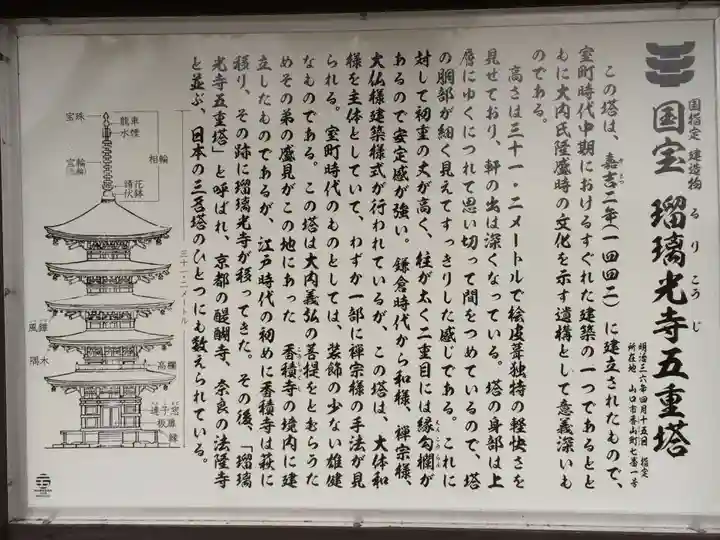 国指定 建造物
国宝 瑠璃光寺五重塔
るりこうじ
明治三六年四月十五日 指定
所在地 山口市香山町七番一号
この塔は、嘉吉二年(一四四二)に建立されたもので、
かきつ
室町時代中期におけるすぐれた建築の一つであるとと
もに大内氏隆盛時の文化を示す遺構として意義深いも
のである。
高さは三十一・二メートルで桧皮葺独特の軽快さを
見せており、軒の出は深くなっている。塔の身部は上
層にゆくにつれて思い切って間をつめているので、塔
の胴部が細く見えてすっきりした感じである。これに
対して初重の丈が高く、柱が太く二重目には縁勾欄が
えんこうらん
あるので安定感が強い。鎌倉時代から和様、禅宗様、
大仏様建築様式が行われているが、この塔は、大体和
様を主体としていて、わずか一部に禅宗様の手法が見
られる。室町時代のものとしては、装飾の少ない雄健
なものである。この塔は大内義弘の菩提をとむらうた
めその弟の盛見がこの地にあった 香積寺の境内に建
こうしゃくじ
立したものであるが、江戸時代の初めに香積寺は萩に
移り、その跡に瑠璃光寺が移ってきた。その後、「瑠璃
光寺五重塔」と呼ばれ、京都の醍醐寺、奈良の法隆寺
と並ぶ、日本の三名塔のひとつにも数えられている。
宝珠
竜車
水煙
相輪
宝輪
(九輪)
請花
伏鉢
三十一・二メートル
風鐸
隅木
高欄
連子窓
板扉
縁